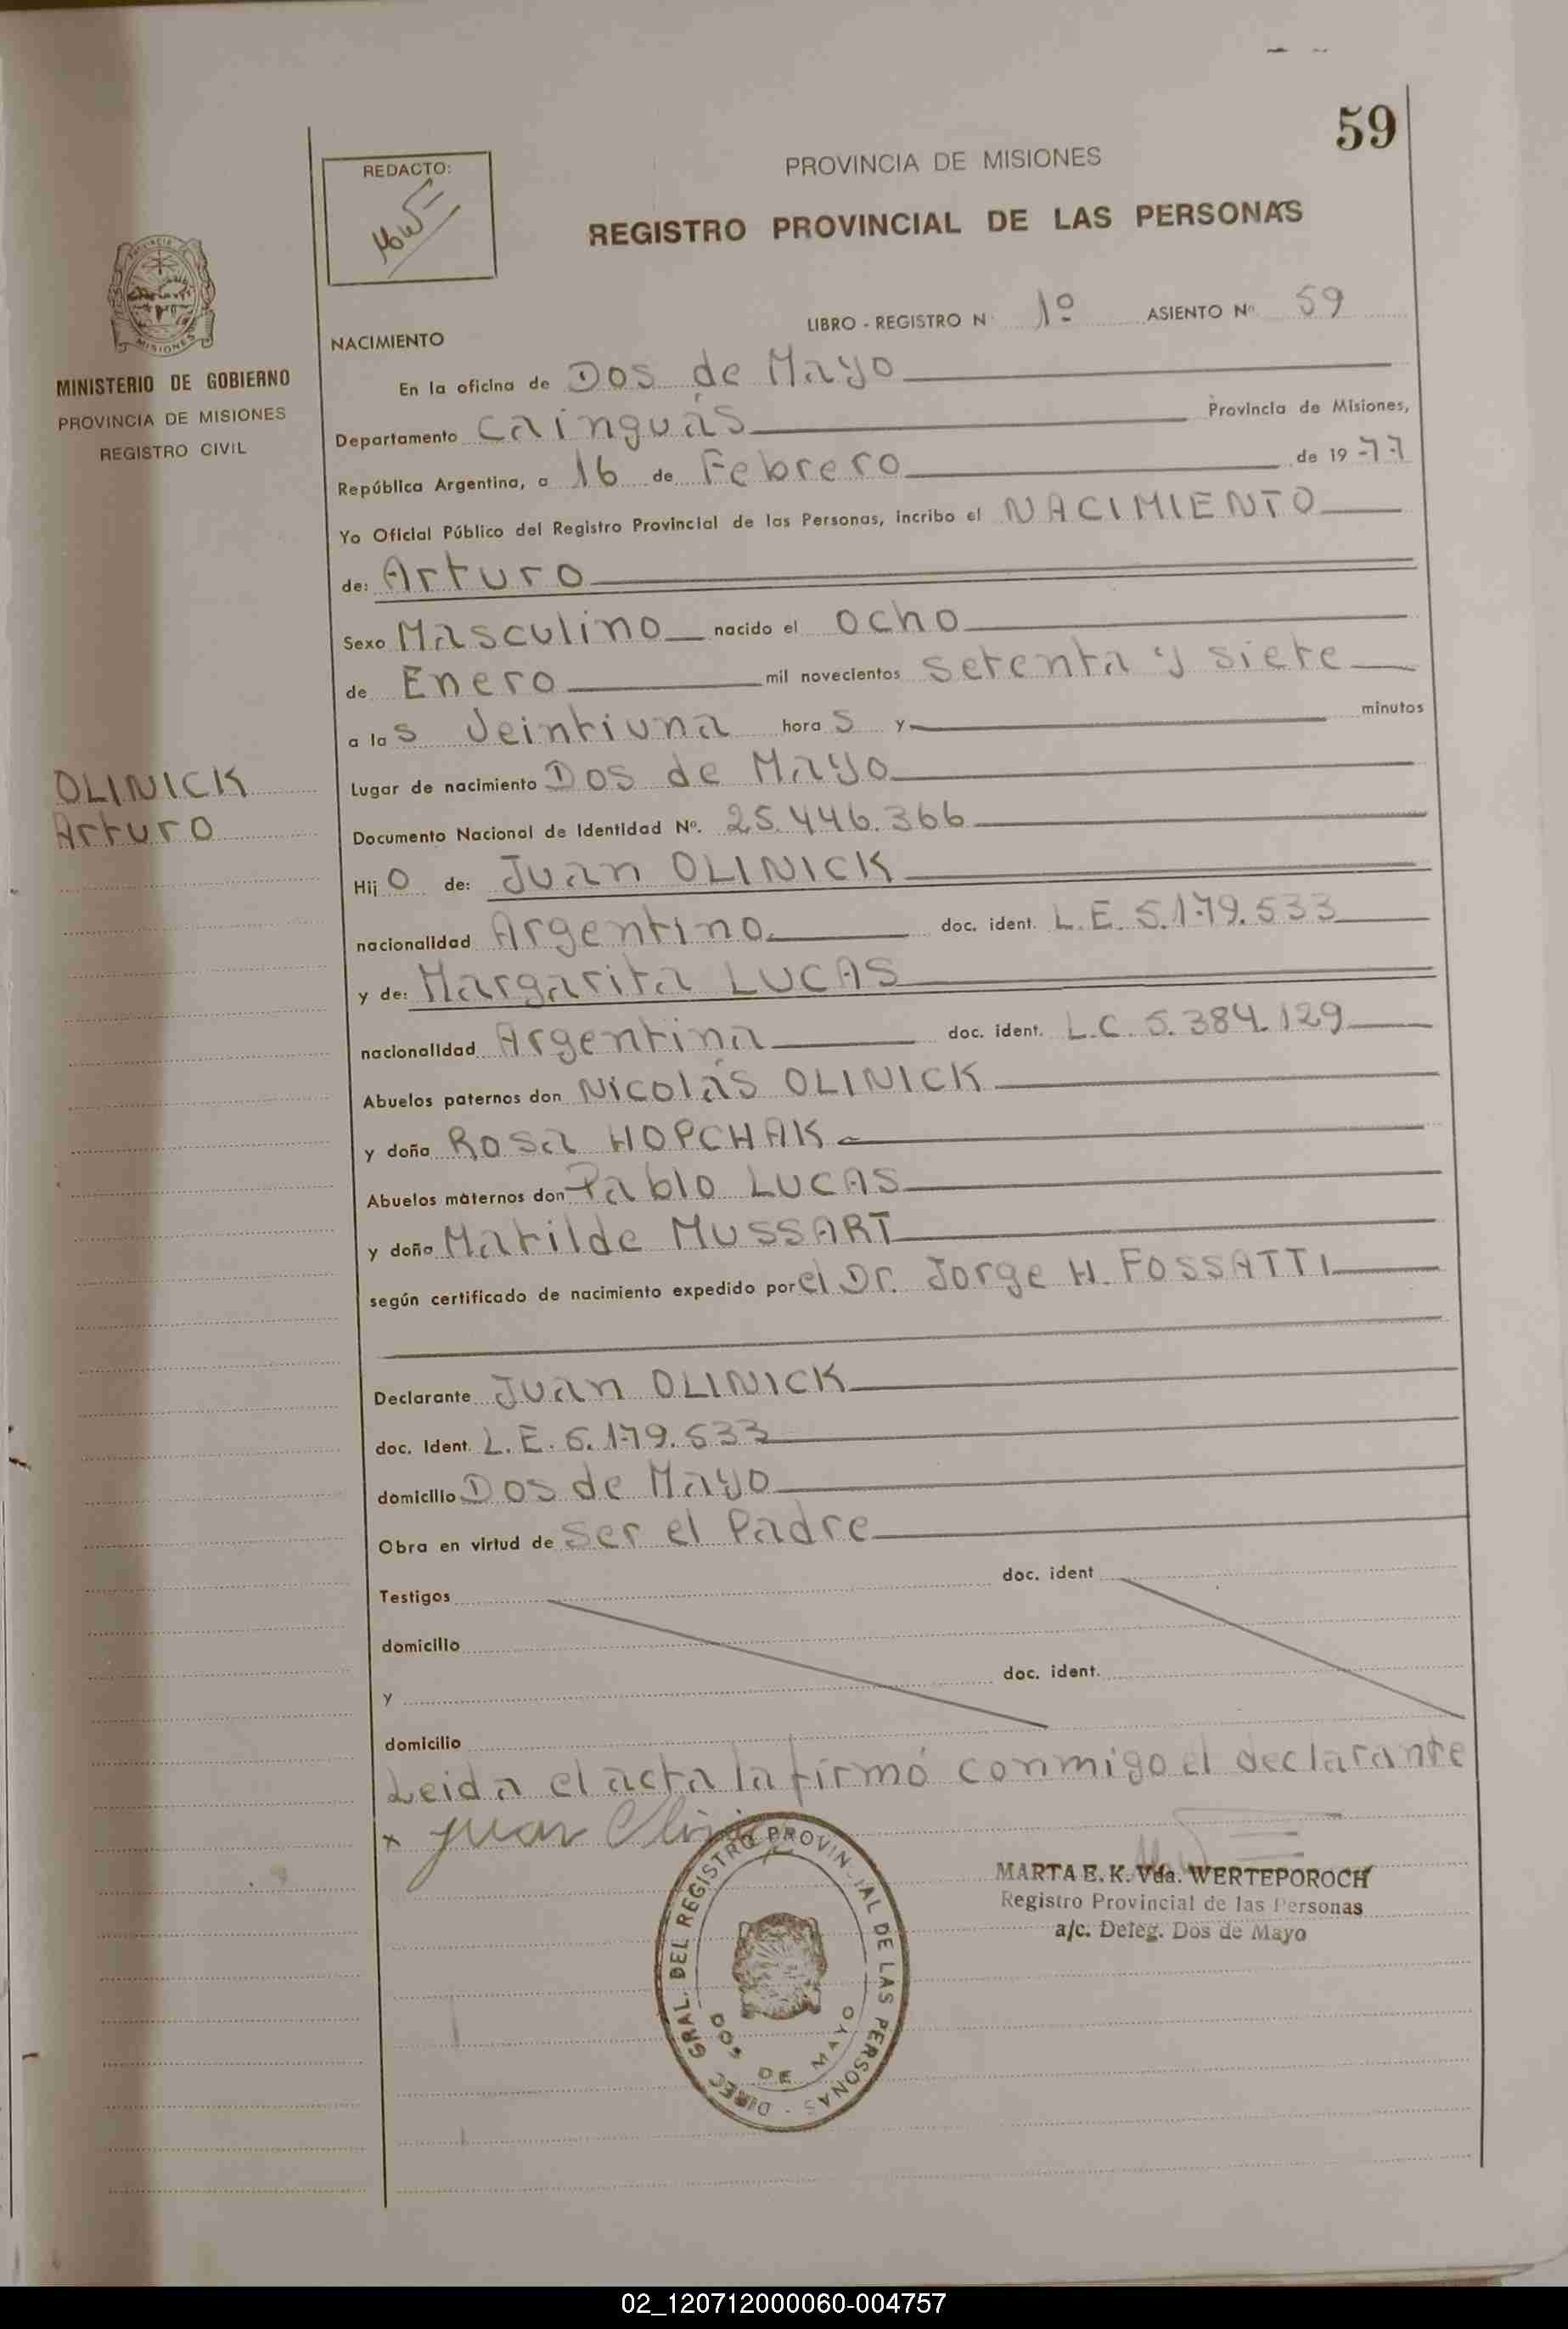 59
REDACTO:
PROVINCIA DE MISIONES
REGISTRO PROVINCIAL DE LAS PERSONAS
MISIONES
MINISTERIO DE GOBIERNO
PROVINCIA DE MISIONES
REGISTRO CIVIL
OLINICK
Arturo
LIBRO - REGISTRO N 1º ASIENTO Nº 59
NACIMIENTO
En la oficina de Dos de Mayo
Departamento Cainguás Provincia de Misiones,
República Argentina, a 16 de Febrero de 19 -77
Yo Oficial Público del Registro Provincial de las Personas, incribo el NACIMIENTO
de: Arturo
Sexo Masculino nacido el ocho
de Enero mil novecientos setenta y siete
a las veintiuna horas y minutos
Lugar de nacimiento Dos de Mayo
Documento Nacional de Identidad Nº. 25.446.366
Hijo de: Juan OLINICK
nacionalidad Argentino doc. ident. L.E. 5.179.533
y de: Margarita LUCAS
nacionalidad Argentina doc. ident. L.C. 5.384.129
Abuelos paternos don Nicolás OLINICK
y doña Rosa HOPCHAK
Abuelos maternos don Pablo LUCAS
y doña Matilde MUSSART
según certificado de nacimiento expedido por el Dr. Jorge H. FOSSATTI
Declarante Juan OLINICK
doc. Ident. L.E. 5.179.533
domicilio Dos de Mayo
Obra en virtud de ser el Padre
Testigos doc. ident
domicilio
y doc. ident.
domicilio
Leida el acta la firmó conmigo el declarante
x Juan Olinick
DIREC. GRAL. DEL REGISTRO PROVINCIAL DE LAS PERSONAS -
DOS DE MAYO
MARTA E. K. Vda. WERTEPOROCH
Registro Provincial de las Personas
a/c. Deleg. Dos de Mayo
02_120712000060-004757